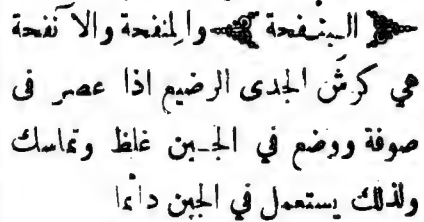 البنفحة والمنفحة والآنفحة
هي كرَش الجدى الرضيع اذا عصر فى
صوفة ووضع في الجبن غلظ وتماسك
ولذلك يستعمل في الجبن دائما